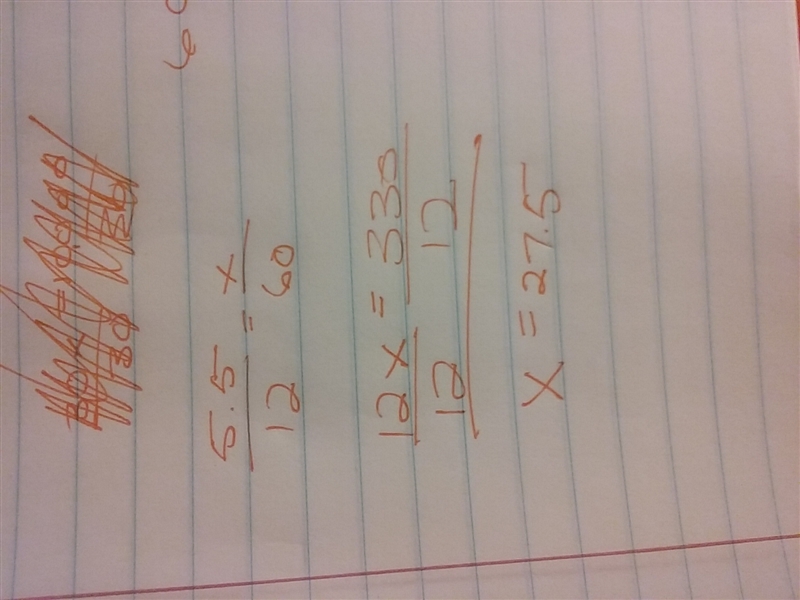 5.5/12 = x/60
12x/12 = 330/12
x = 27.5